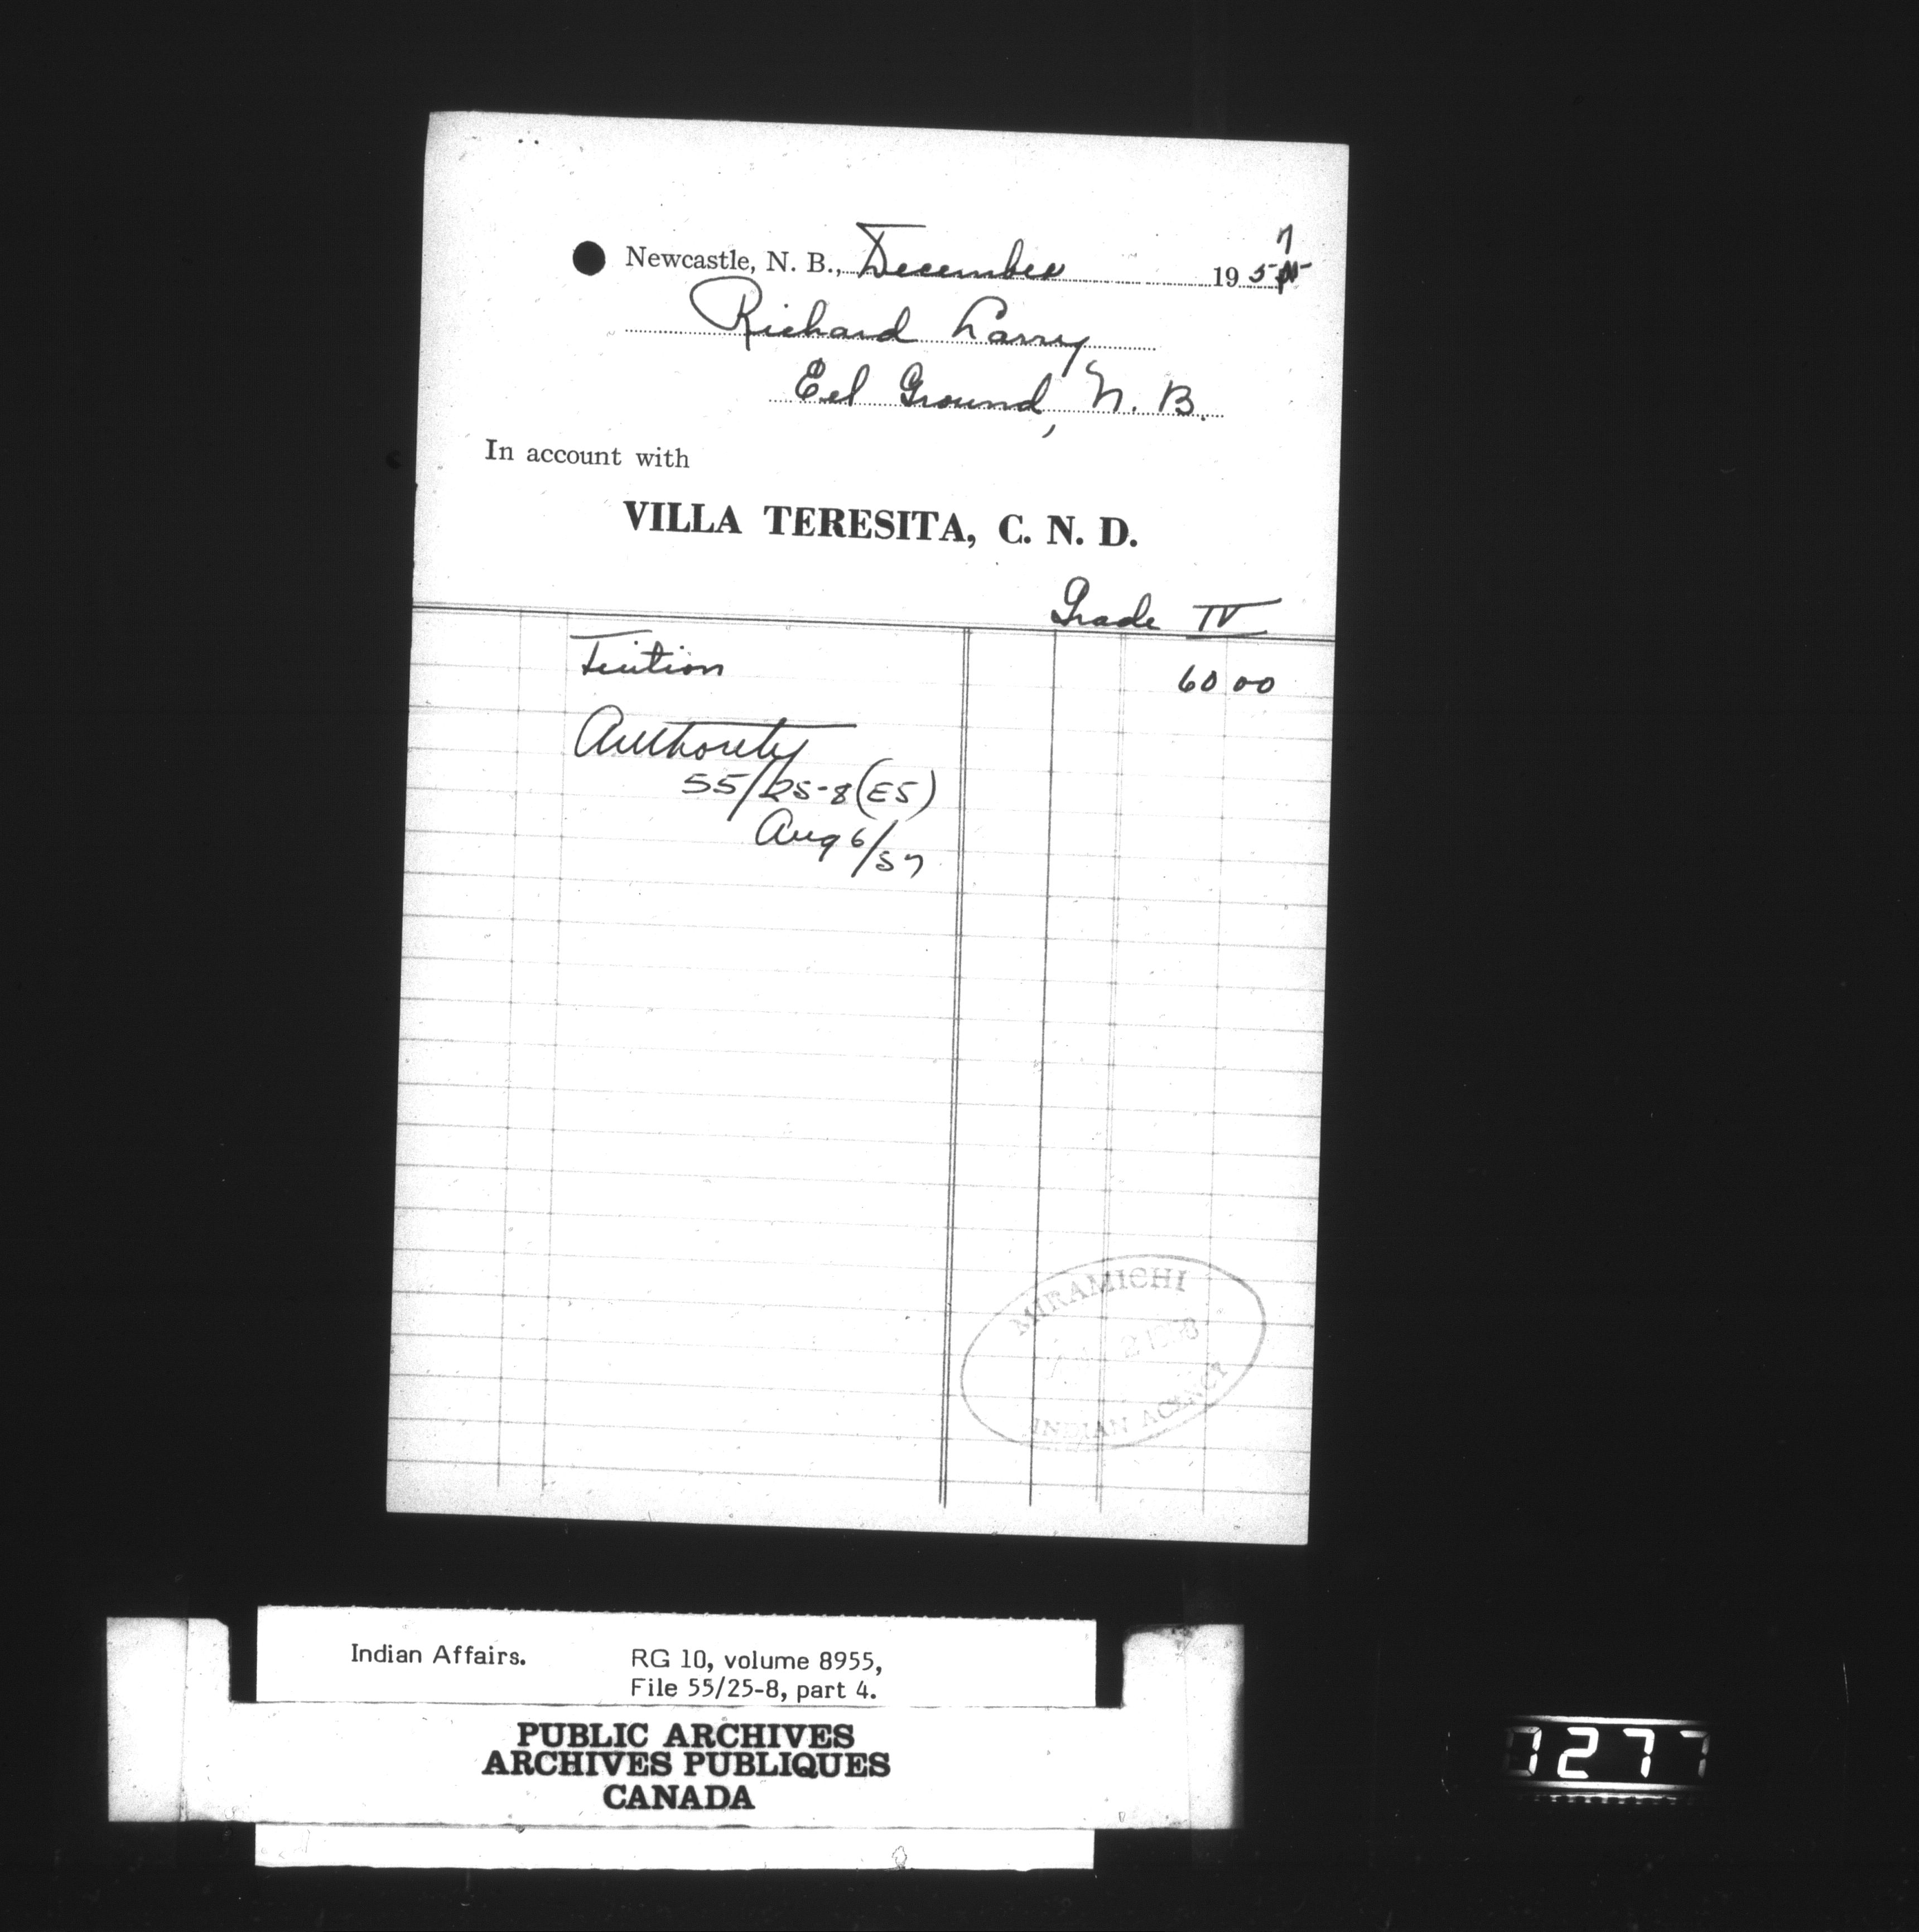 Newcastle, N. B., December 1957
Richard Larry
Eel Ground, N. B.
In account with
VILLA TERESITA, C. N. D.
Grade IV
Tuition 60 00
Authority
55/25-8 (E5)
Aug 6/57
MIRAMICHI
INDIAN AGENCY
Indian Affairs. RG 10, volume 8955,
File 55/25-8, part 4.
PUBLIC ARCHIVES
ARCHIVES PUBLIQUES
CANADA
7277